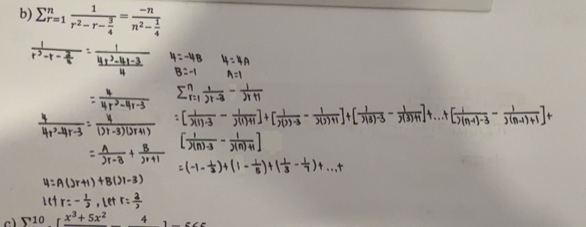 b) ∑ⁿᵣ₌₁ 1/(r² − r − 3/4) = −n/(n² − 1/4)
1/(r² − r − 3/4) = 1/((4r² − 4r − 3)/4)
= 4/(4r² − 4r − 3)
4/(4r² − 4r − 3) = 4/((2r − 3)(2r + 1))
= A/(2r − 3) + B/(2r + 1)
4 = A(2r + 1) + B(2r − 3)
let r = −1/2, let r = 3/2
4 = −4B 4 = 4A
B = −1 A = 1
∑ⁿᵣ₌₁ 1/(2r − 3) − 1/(2r + 1)
= [1/(2(1) − 3) − 1/(2(1) + 1)] + [1/(2(2) − 3) − 1/(2(2) + 1)] + [1/(2(3) − 3) − 1/(2(3) + 1)] + ... + [1/(2(n−1) − 3) − 1/(2(n−1) + 1)] +
[1/(2(n) − 3) − 1/(2(n) + 1)]
= (−1 − 1/3) + (1 − 1/5) + (1/3 − 1/7) + ... +
c) ∑¹⁰ [x³ + 5x² 4